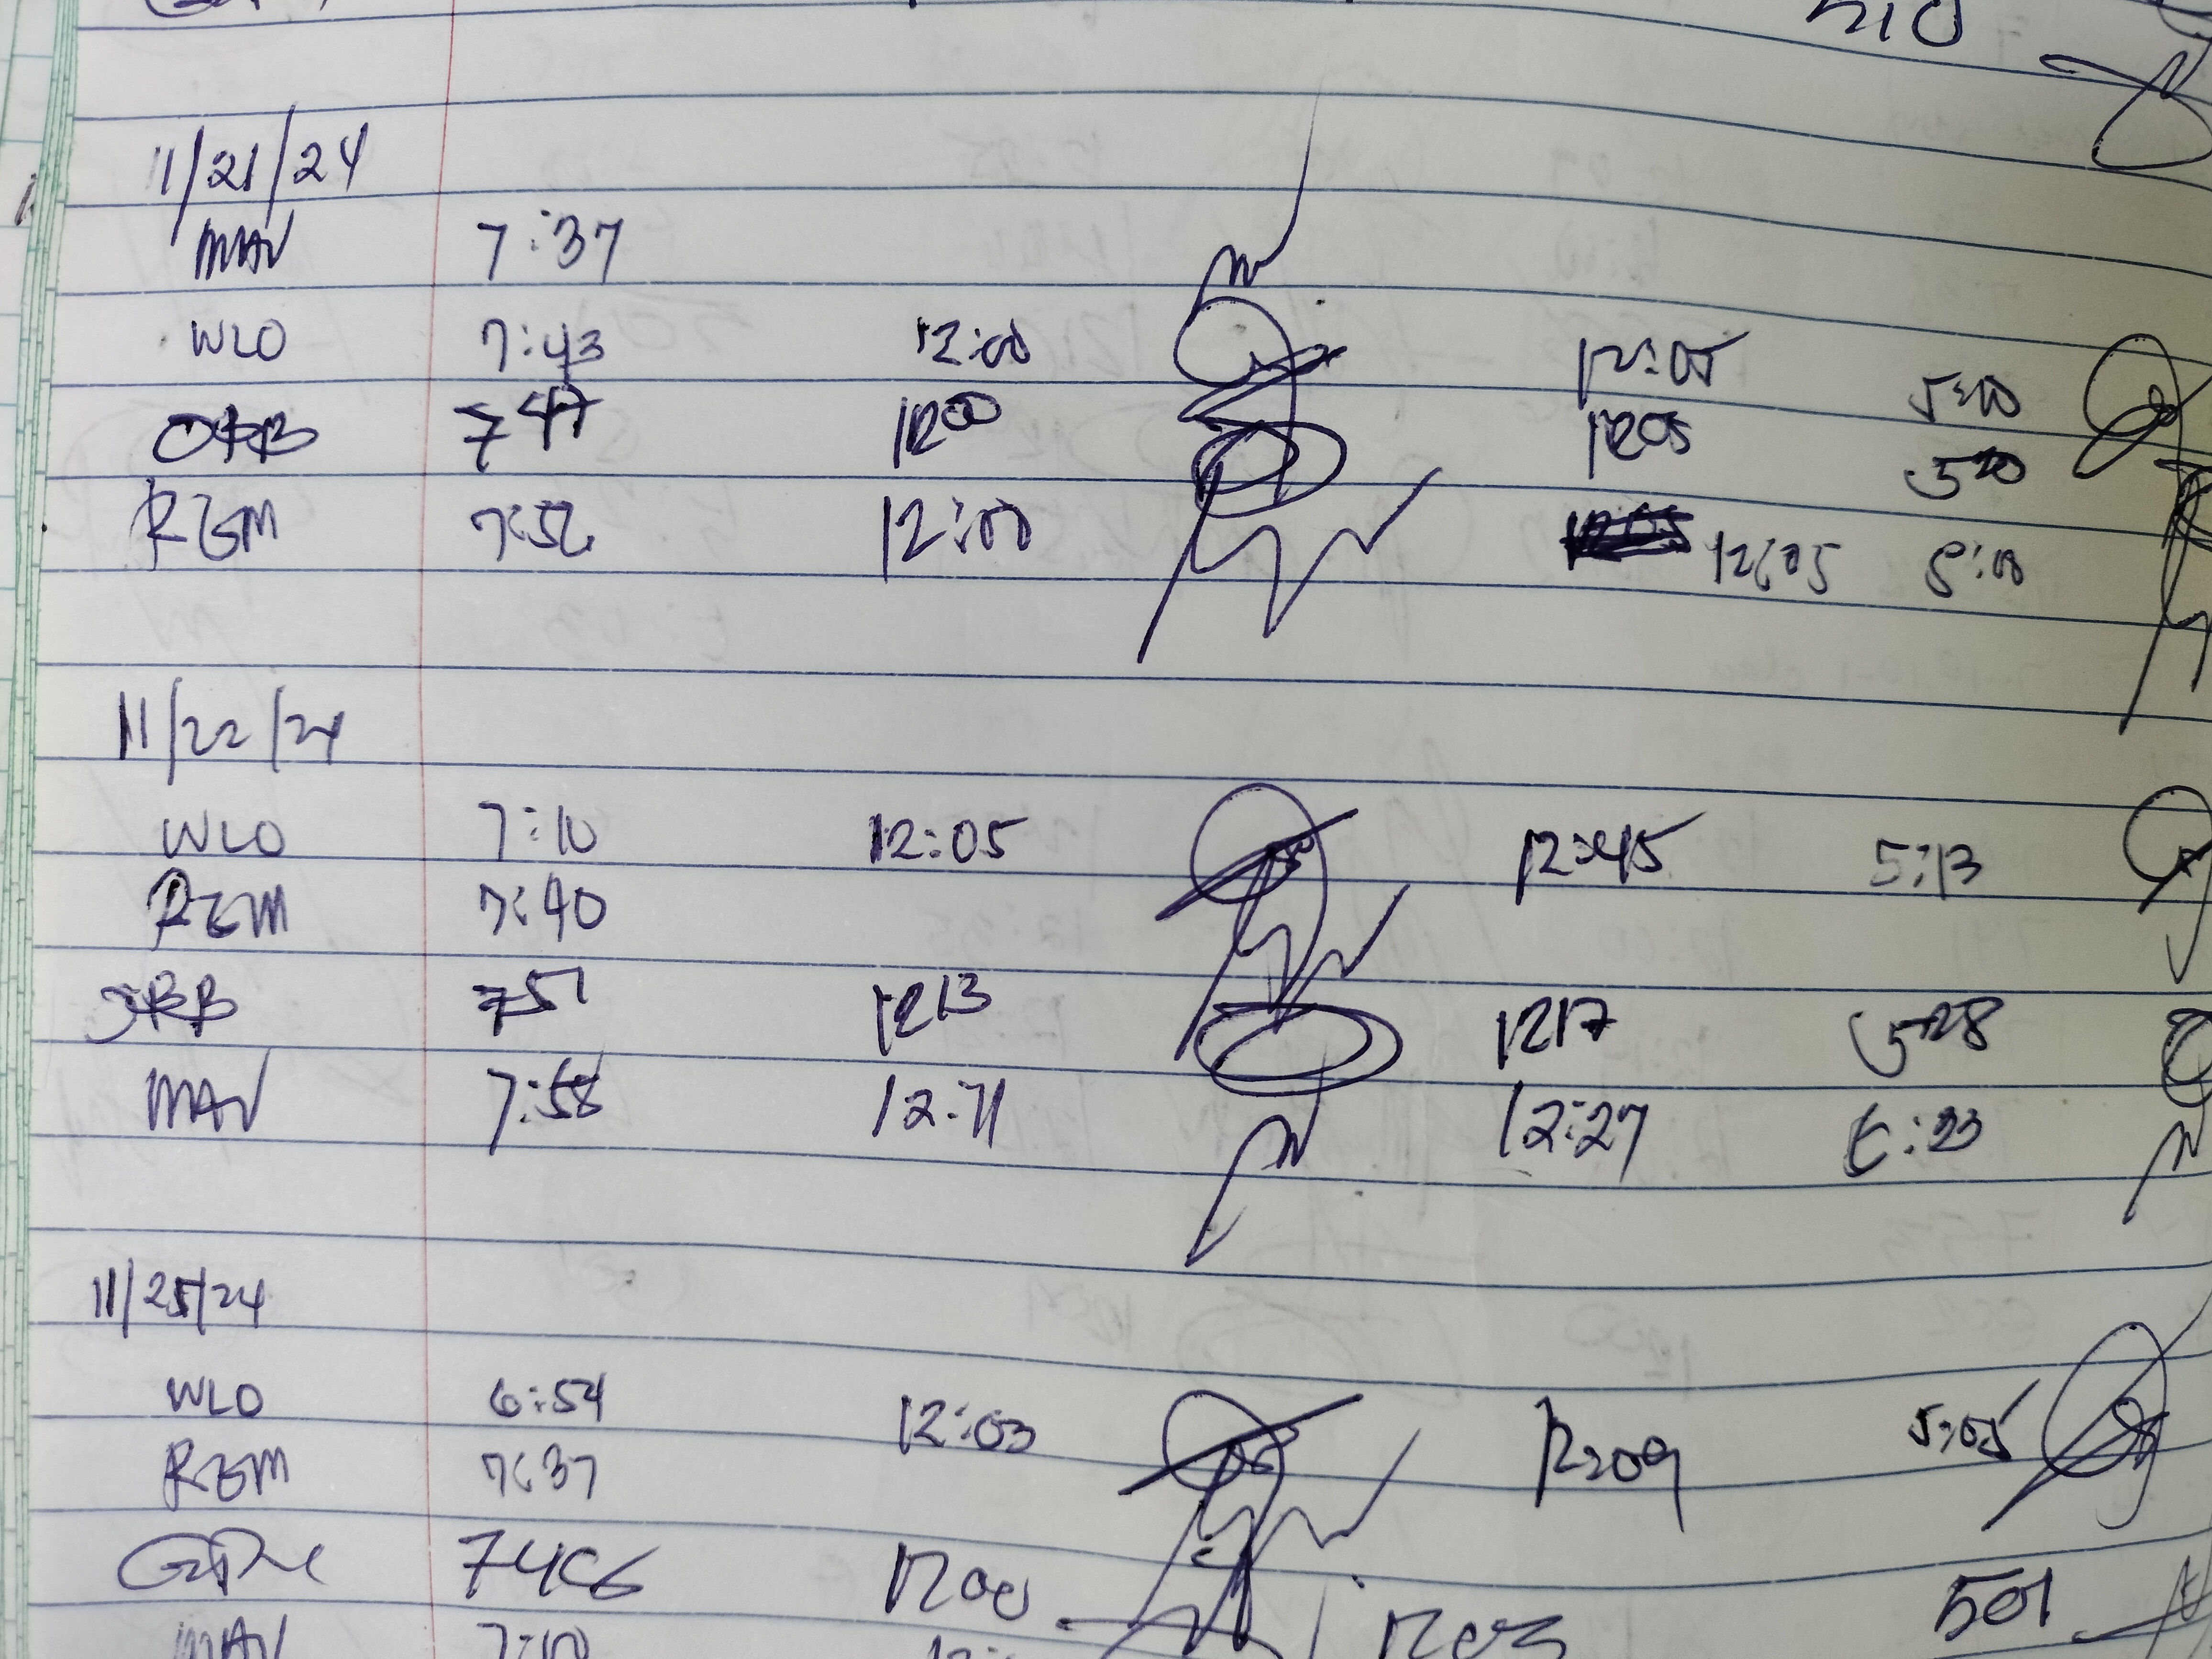 510
11/21/24
MAV 7:37
WLO 7:43 12:00 12:05 5:10
JRB 747 1200 1205 520
RGM 7:52 12:00 12:05 5:00
11/22/24
WLO 7:10 12:05 12:45 5:13
RGM 7:40
JRB 751 1213 1217 528
MAV 7:58 12:27
11/25/24
WLO 6:54 12:03 12:09 5:05
RGM 7:37
1200 1203 501
MAV